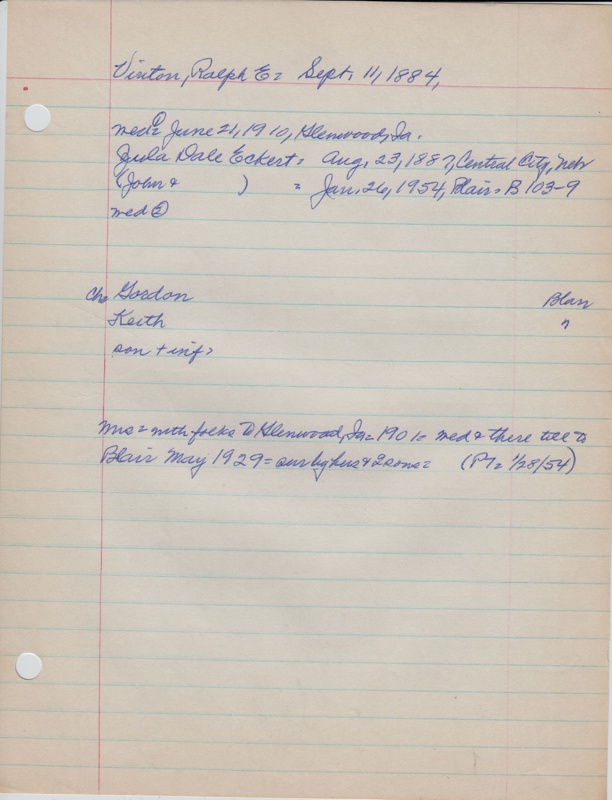 Vinton, Ralph E = Sept. 11, 1884,
med① = June 21, 1910, Glenwood, Ia.
Zula Dale Eckert = Aug. 23, 1887, Central City, Neb
(John + ) = Jan. 26, 1954, Blair = B 103-9
med②
Ch = Gordon Blair
Keith "
son + inf =
Mrs = with folks to Glenwood, Ia = 1901 = med + there till to
Blair May 1929 = sur by hus + 2 sons = (PT = 1/28/54)